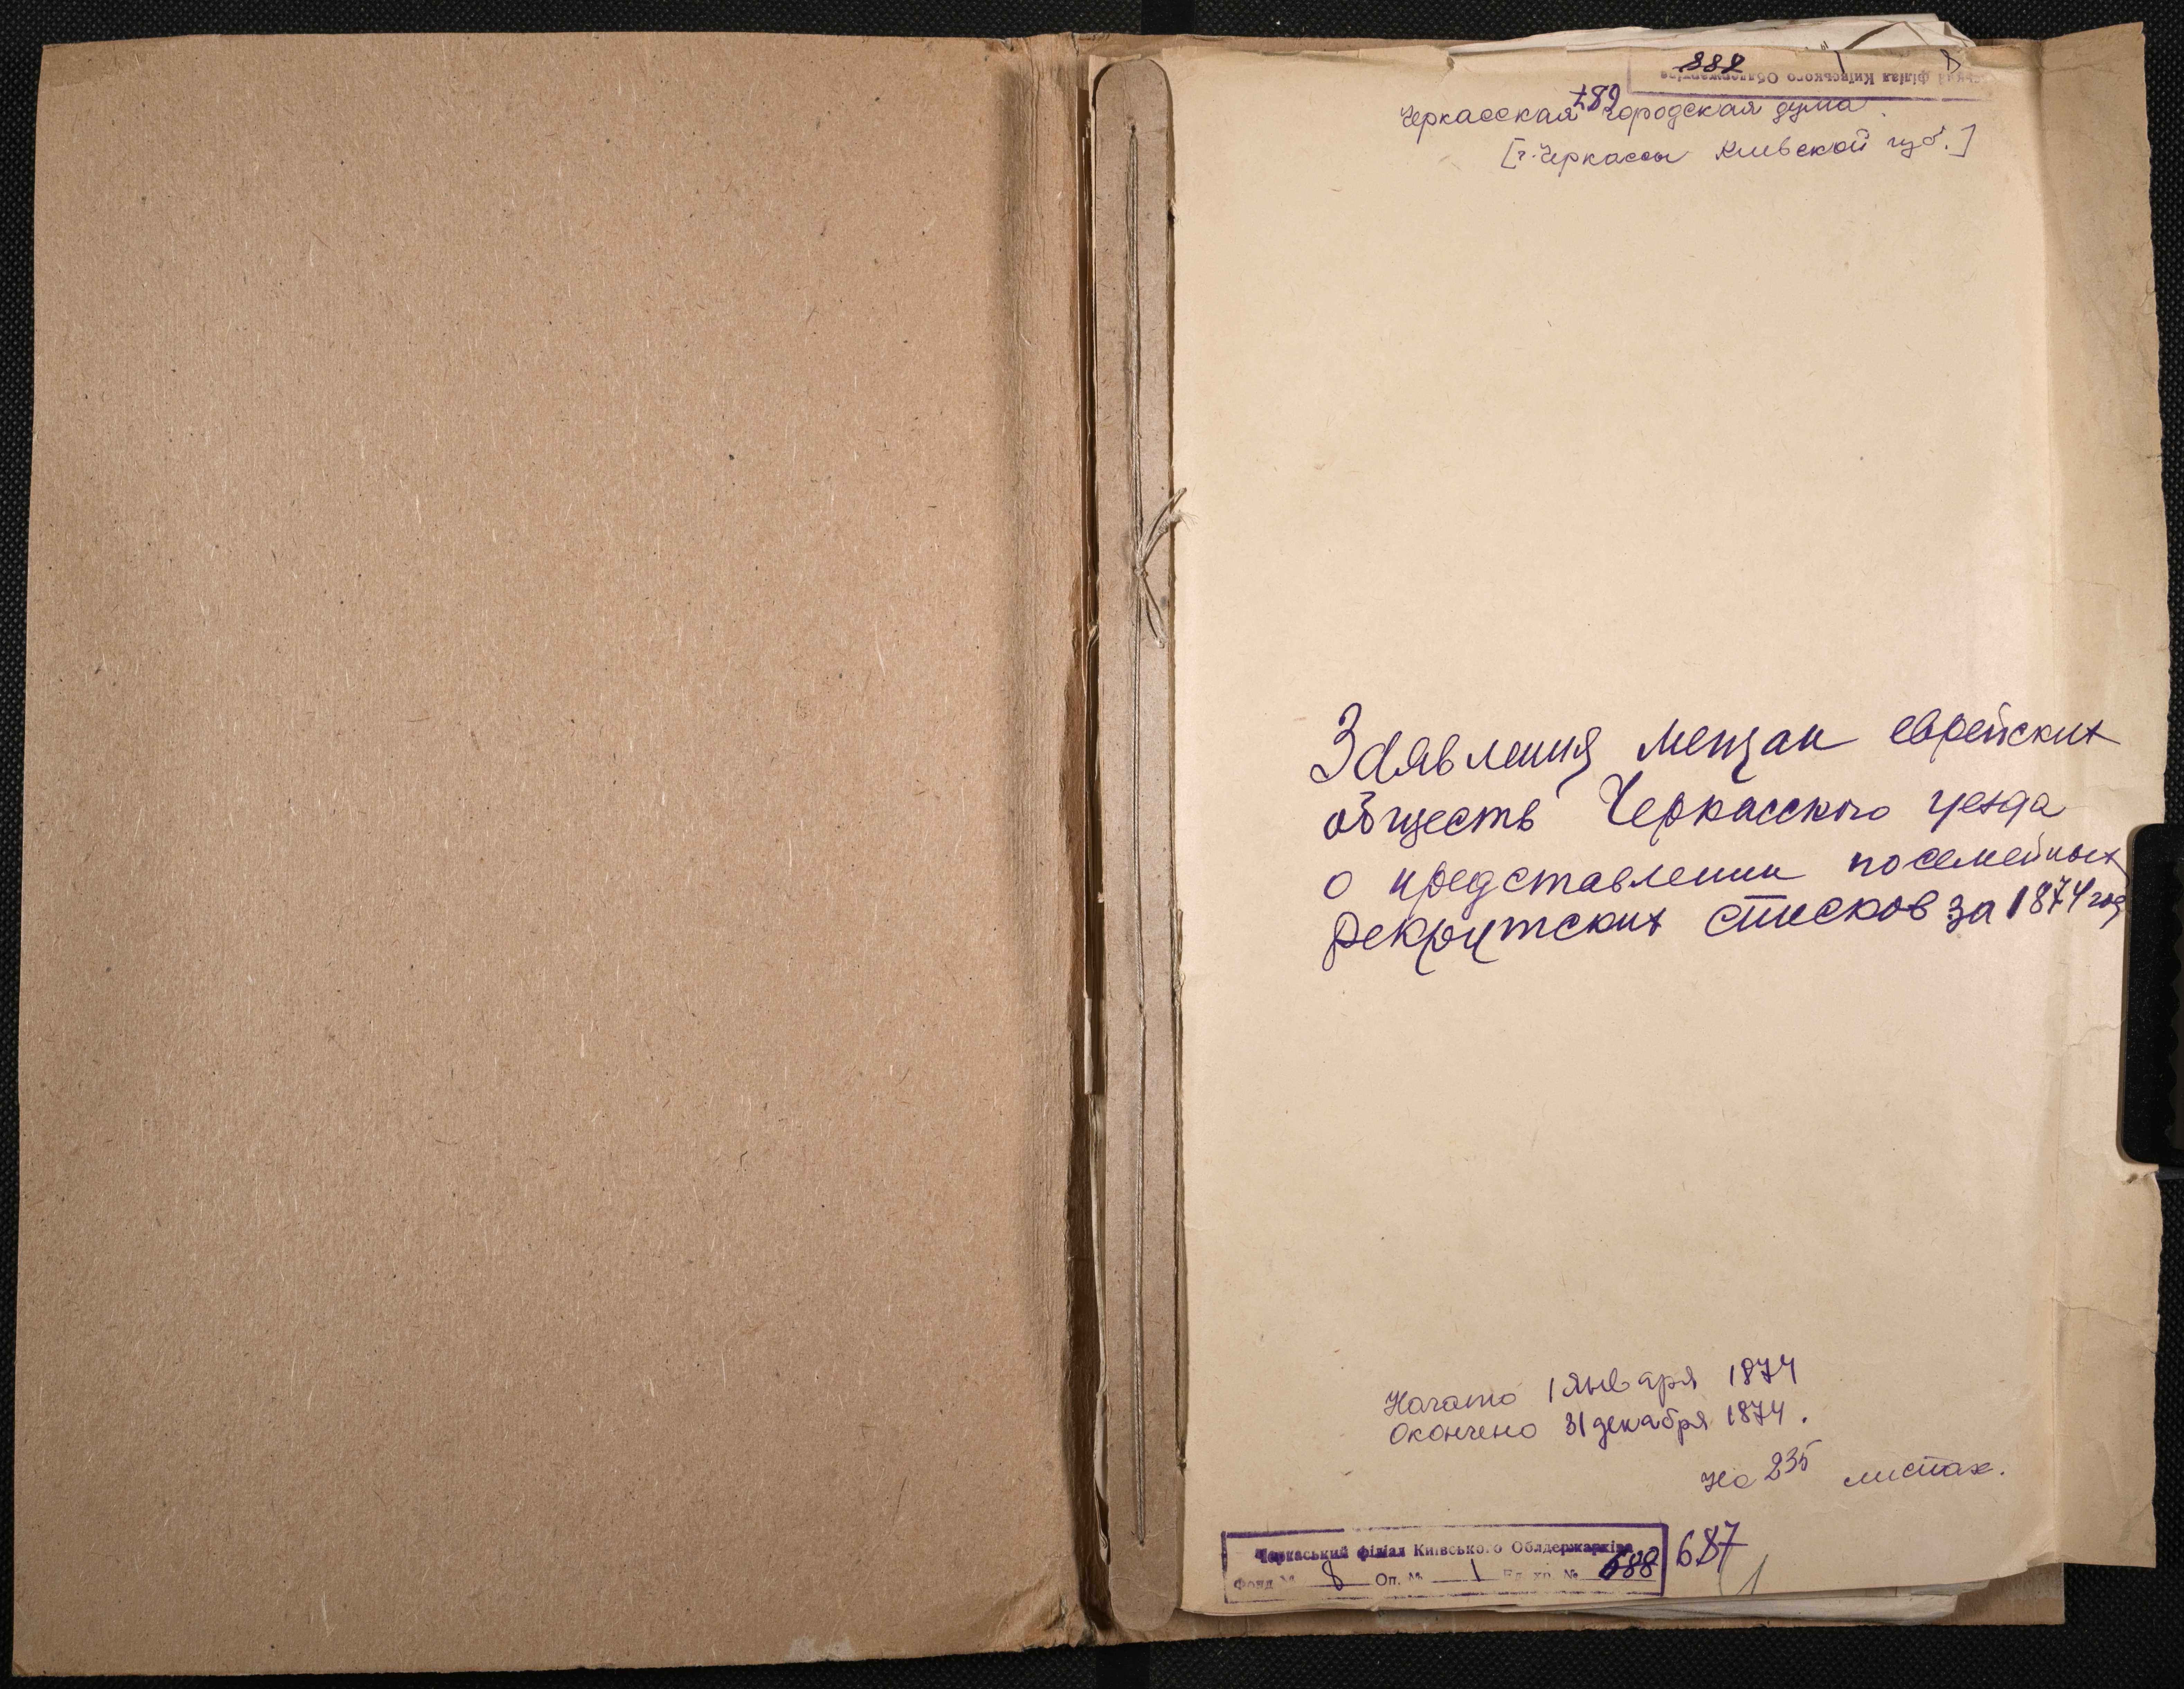 888 1 8
ський філіял Київського Облдержархіва
Черкасская городская дума
[г. Черкассы Киевской губ.]
Заявления мещан еврейских
обществ Черкасского уезда
о представлении посемейных
рекрутских списков за 1874 год
Начато 1 января 1874
Окончено 31 декабря 1874.
На 235 листах.
Черкаський філіял Київського Облдержархіва
Фонд № 8 Оп. № 1 Ед. хр. № 688 687